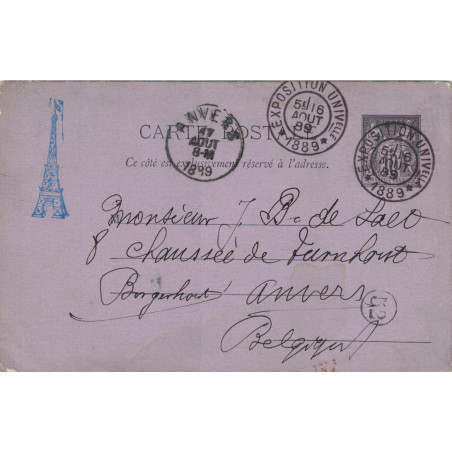 EXPOSITION UNIVELLE
5E/16
AOUT
89
*1889*
ANVERS
17
AOUT
8-M
1889
CARTE POSTALE
Ce côté est exclusivement réservé à l'adresse.
EXPOSITION UNIVELLE
5E/16
AOUT
89
*1889*
Monsieur J. B. de Laet
8 chaussée de Turnhout
Borgerhout Anvers
52
Belgique